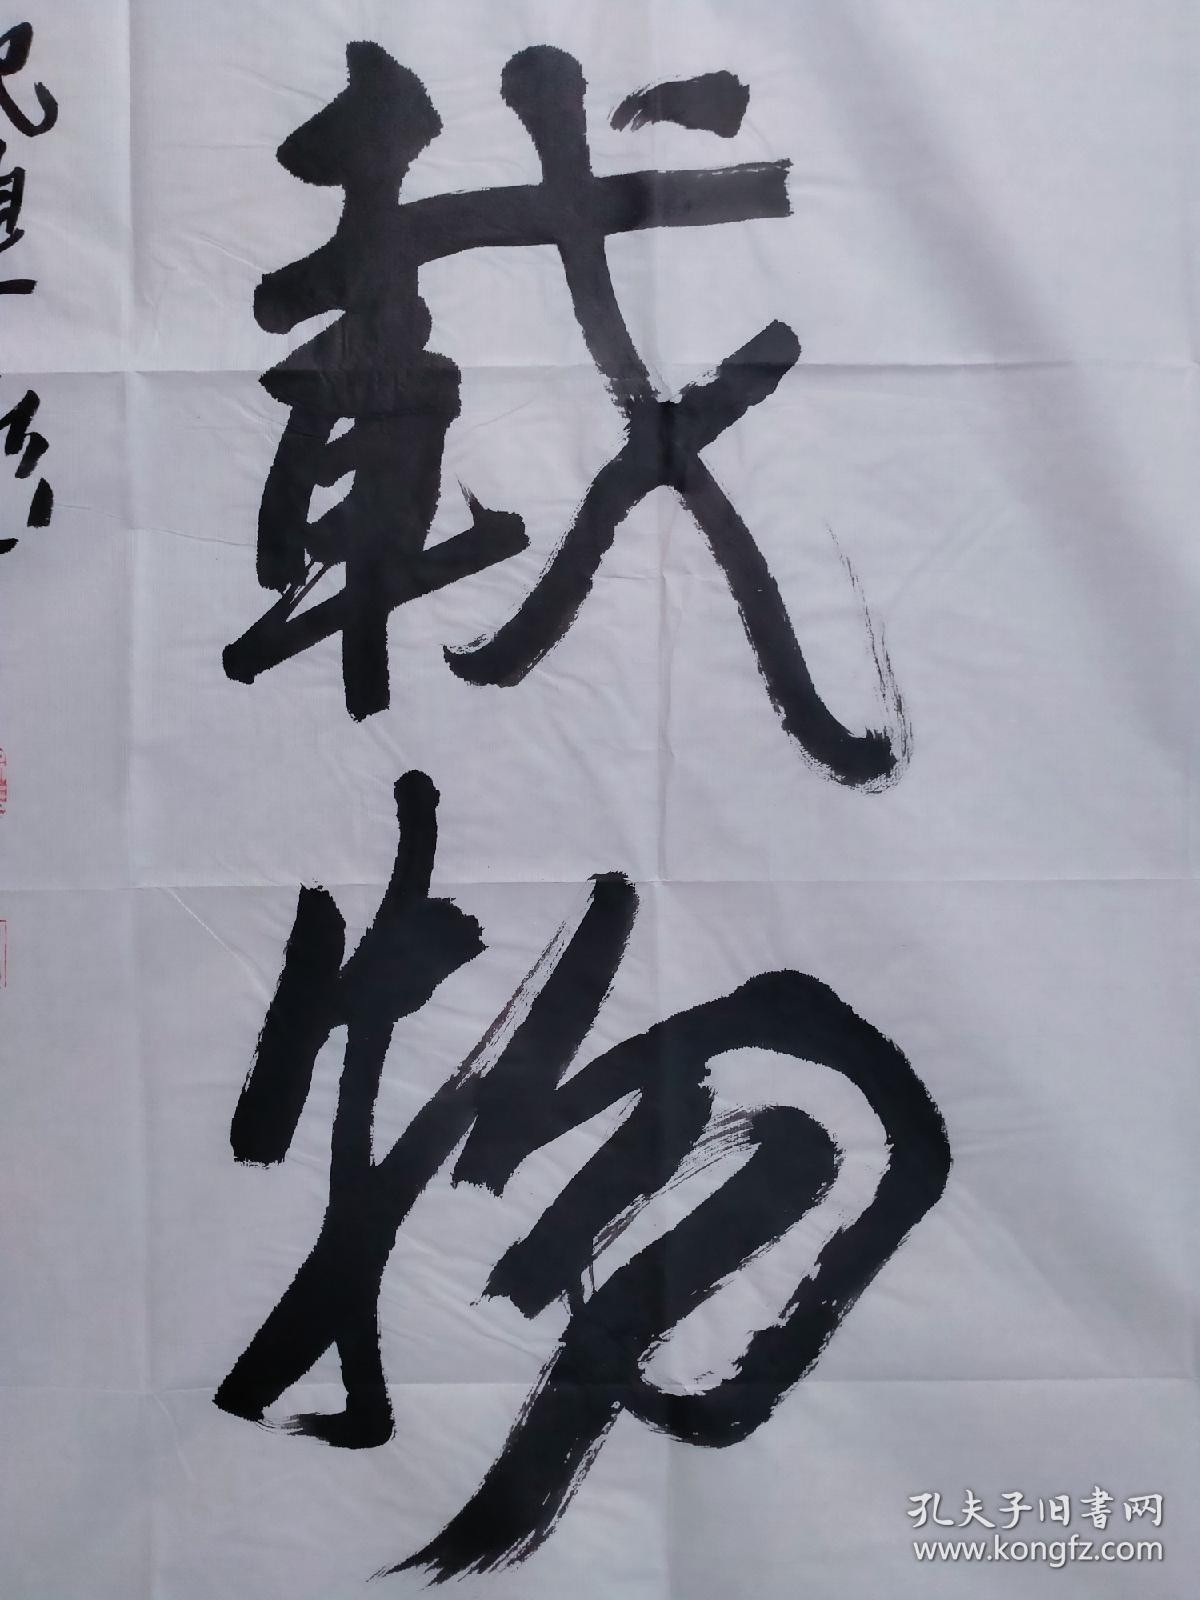 载物
孔夫子旧書网
www.kongfz.com